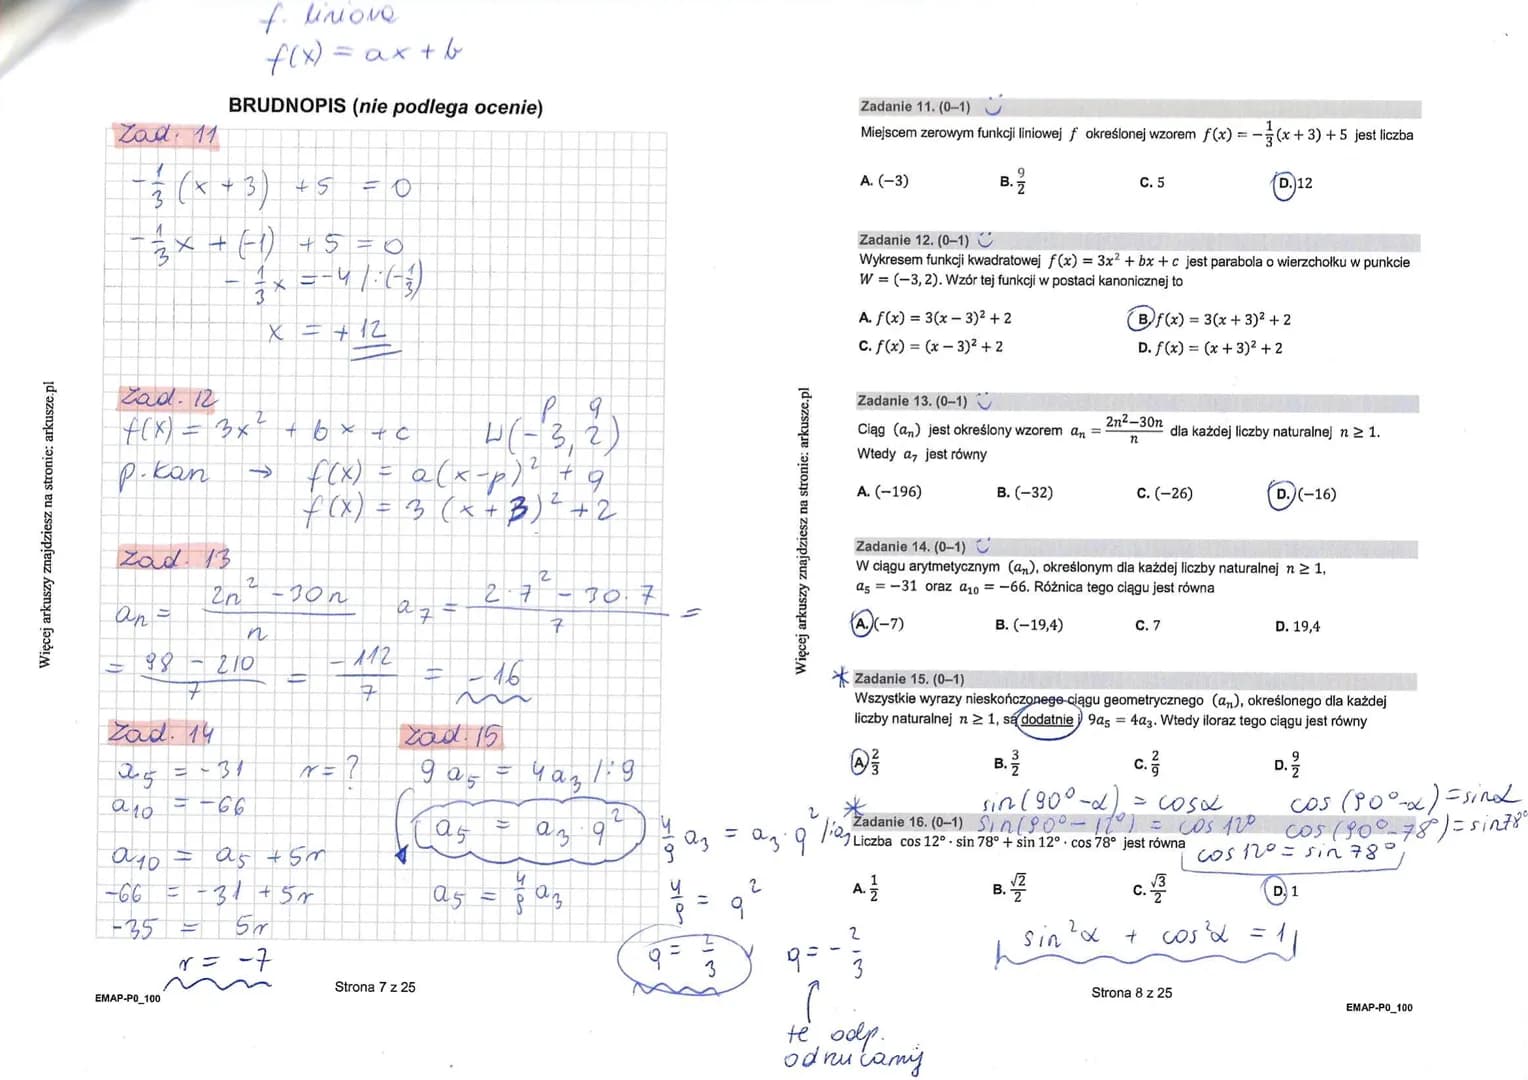 f. liniowa
f(x) = ax + b
BRUDNOPIS (nie podlega ocenie)
Zad. 11
-1/3 (x + 3) + 5 = 0
-1/3 x + (-1) + 5 = 0
-1/3 x = -4 /:(-1/3)
x = +12
Zad. 12
f(x) = 3x² + bx + c
p q
W(-3, 2)
p. kan → f(x) = a(x-p)² + q
f(x) = 3 (x + 3)² + 2
Zad. 13
an = (2n² - 30n)/n a7 = (2·7² - 30·7)/7 =
= (98 - 210)/7 = -112/7 = -16
Zad. 14
a5 = -31 r = ?
a10 = -66
a10 = a5 + 5r
-66 = -31 + 5r
-35 = 5r
r = -7
Zad. 15
9 a5 = 4a3 /:9
a5 = a3 · q²
a5 = 4/9 a3
4/9 a3 = a3 · q² /:a3
4/9 = q²
q = 2/3
q = -2/3
tę odp.
odrzucamy
Strona 7 z 25
EMAP-P0_100
Więcej arkuszy znajdziesz na stronie: arkusze.pl
Więcej arkuszy znajdziesz na stronie: arkusze.pl
Zadanie 11. (0–1)
Miejscem zerowym funkcji liniowej f określonej wzorem f(x) = −1/3(x + 3) + 5 jest liczba
A. (−3) B. 9/2 C. 5 D. 12
Zadanie 12. (0–1)
Wykresem funkcji kwadratowej f(x) = 3x² + bx + c jest parabola o wierzchołku w punkcie
W = (−3, 2). Wzór tej funkcji w postaci kanonicznej to
A. f(x) = 3(x − 3)² + 2 B. f(x) = 3(x + 3)² + 2
C. f(x) = (x − 3)² + 2 D. f(x) = (x + 3)² + 2
Zadanie 13. (0–1)
Ciąg (an) jest określony wzorem an = (2n²−30n)/n dla każdej liczby naturalnej n ≥ 1.
Wtedy a7 jest równy
A. (−196) B. (−32) C. (−26) D. (−16)
Zadanie 14. (0–1)
W ciągu arytmetycznym (an), określonym dla każdej liczby naturalnej n ≥ 1,
a5 = −31 oraz a10 = −66. Różnica tego ciągu jest równa
A. (−7) B. (−19,4) C. 7 D. 19,4
* Zadanie 15. (0–1)
Wszystkie wyrazy nieskończonego ciągu geometrycznego (an), określonego dla każdej
liczby naturalnej n ≥ 1, są dodatnie i 9a5 = 4a3. Wtedy iloraz tego ciągu jest równy
A. 2/3 B. 3/2 C. 2/9 D. 9/2
sin(90°-α) = cosα cos(90°-α) = sinα
* Zadanie 16. (0–1) sin(90°-12°) = cos 12° cos(90°-78°) = sin78°
Liczba cos 12° · sin 78° + sin 12° · cos 78° jest równa
cos 12° = sin 78°
A. 1/2 B. √2/2 C. √3/2 D. 1
sin²α + cos²α = 1
Strona 8 z 25
EMAP-P0_100